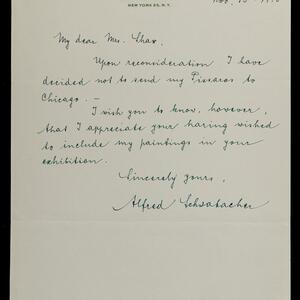 NEW YORK 25, N.Y.
My dear Mrs. Shaw,
Upon reconsideration I have
decided not to send my Pissaros to
Chicago. —
I wish you to know, however,
that I appreciate your having wished
to include my paintings in your
exhibition.
Sincerely yours,
Alfred Schwabacher